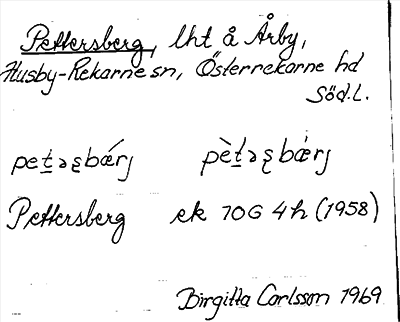 Pettersberg, lht å Årby,
Husby-Rekarne sn, Österrekarne hd
Söd.L.
pet̲əʂbǽrj pèt̲əʂbæ̀rj
Pettersberg ek 70G 4h (1958)
Birgitta Carlsson 1969